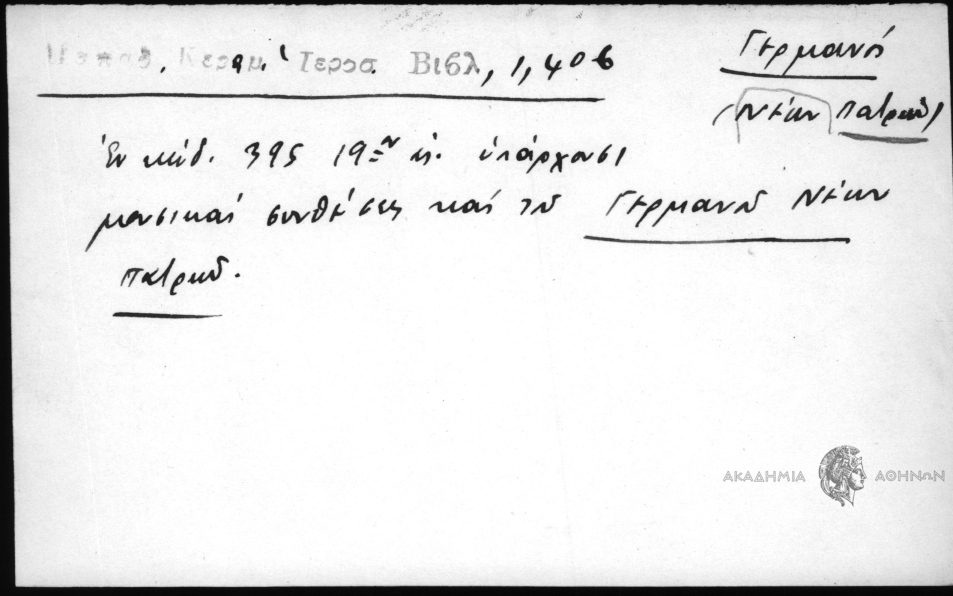 Παπαδ. Κεραμ. Ιεροσ. Βιβλ, 1, 406
Γερμανός
(Νέων Πατρῶν)
Ἐν κώδ. 395 19ου αἰ. ὑπάρχουσι
μουσικαί συνθέσεις καί τοῦ Γερμανοῦ Νέων
Πατρῶν.
ΑΚΑΔΗΜΙΑ ΑΘΗΝΩΝ